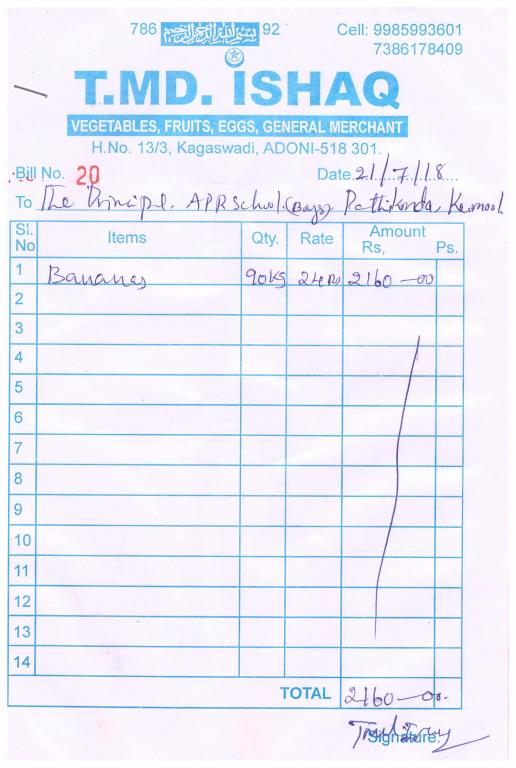 786 بسم الله الرحمن الرحيم 92 Cell: 9985993601
7386178409
T.MD. ISHAQ
VEGETABLES, FRUITS, EGGS, GENERAL MERCHANT
H.No. 13/3, Kagaswadi, ADONI-518 301.
Bill No. 20 Date 21/7/18
To The Principl. APR School. (Boys) Pathikonda, Kurnool.
Sl. No Items Qty. Rate Amount Rs, Ps.
1 Bananas 90KG 24Rs 2160-00
2
3
4
5
6
7
8
9
10
11
12
13
14
TOTAL 2160-00.
Signature.